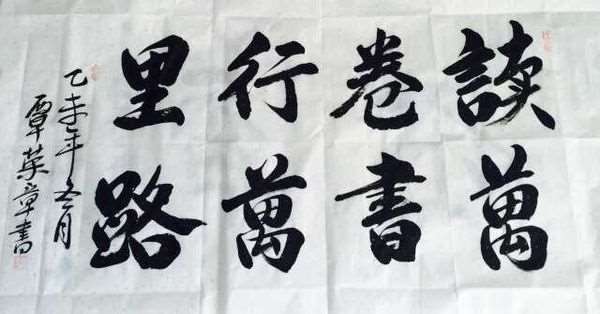 讀萬
卷書
行萬
里路
乙未年五月
覃英章書